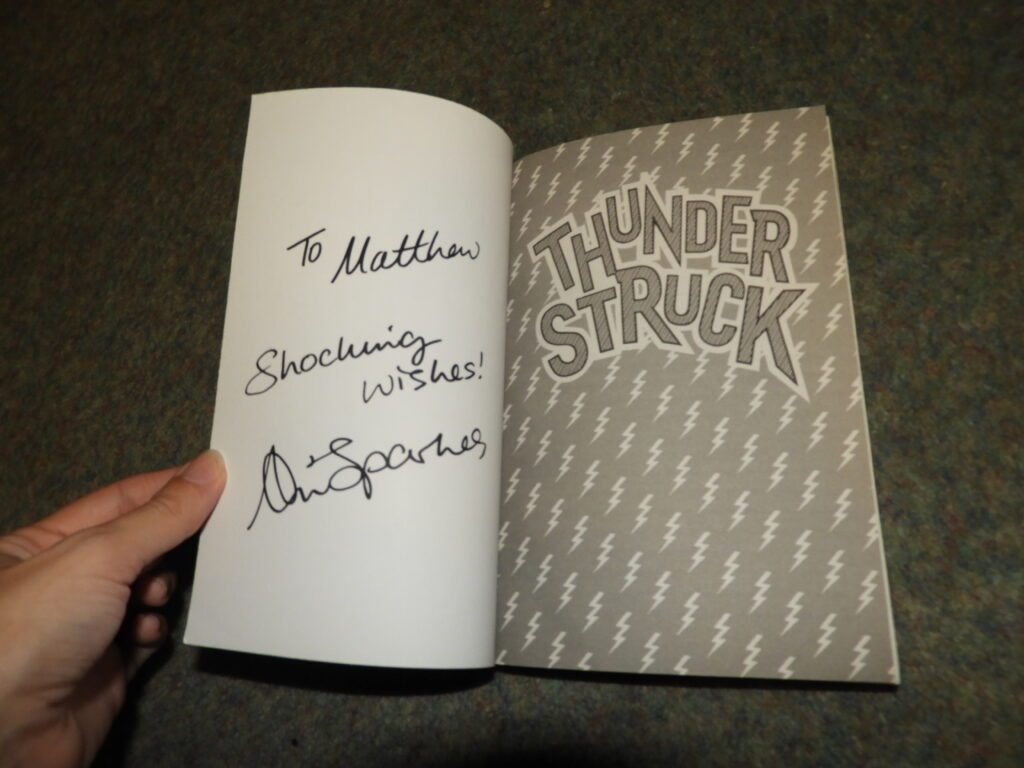 To Matthew
Shocking
wishes!
Ali Sparkes
THUNDER
STRUCK